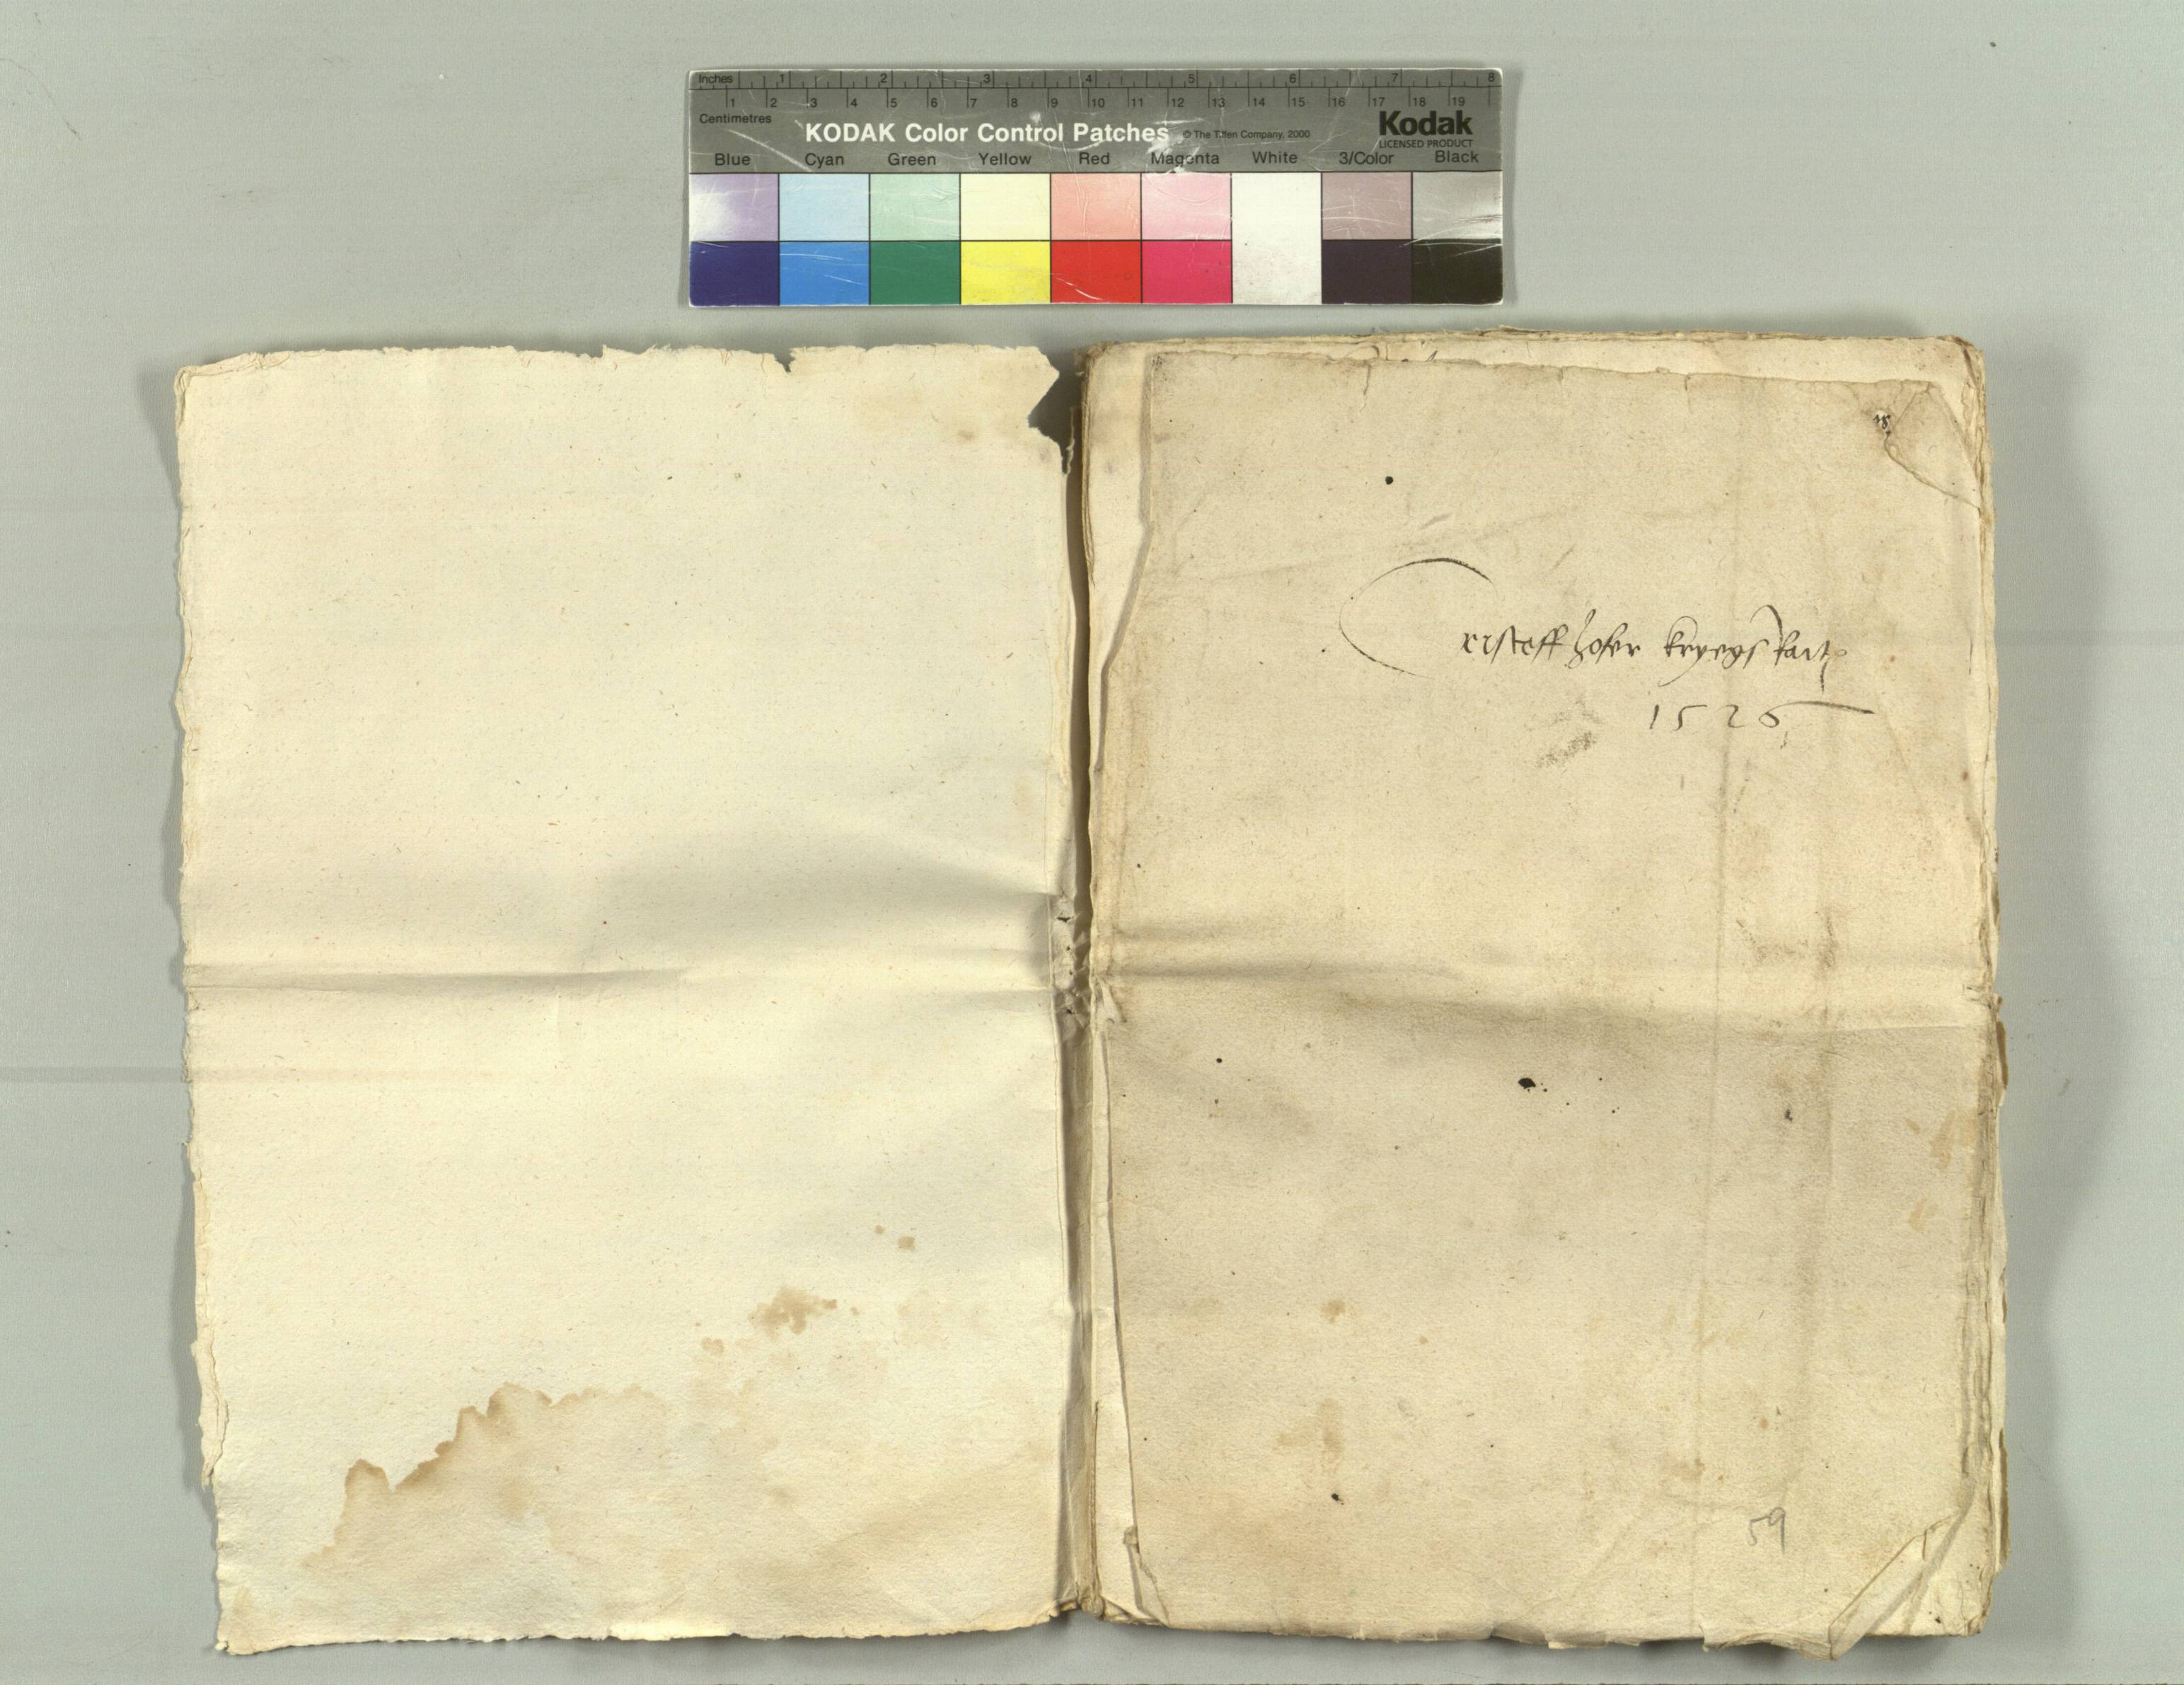 Inches 1 2 3 4 5 6 7 8
1 2 3 4 5 6 7 8 9 10 11 12 13 14 15 16 17 18 19
Centimetres
KODAK Color Control Patches © The Tiffen Company, 2000 Kodak
LICENSED PRODUCT
Blue Cyan Green Yellow Red Magenta White 3/Color Black
Cristeff hofer kryegs
1526
59